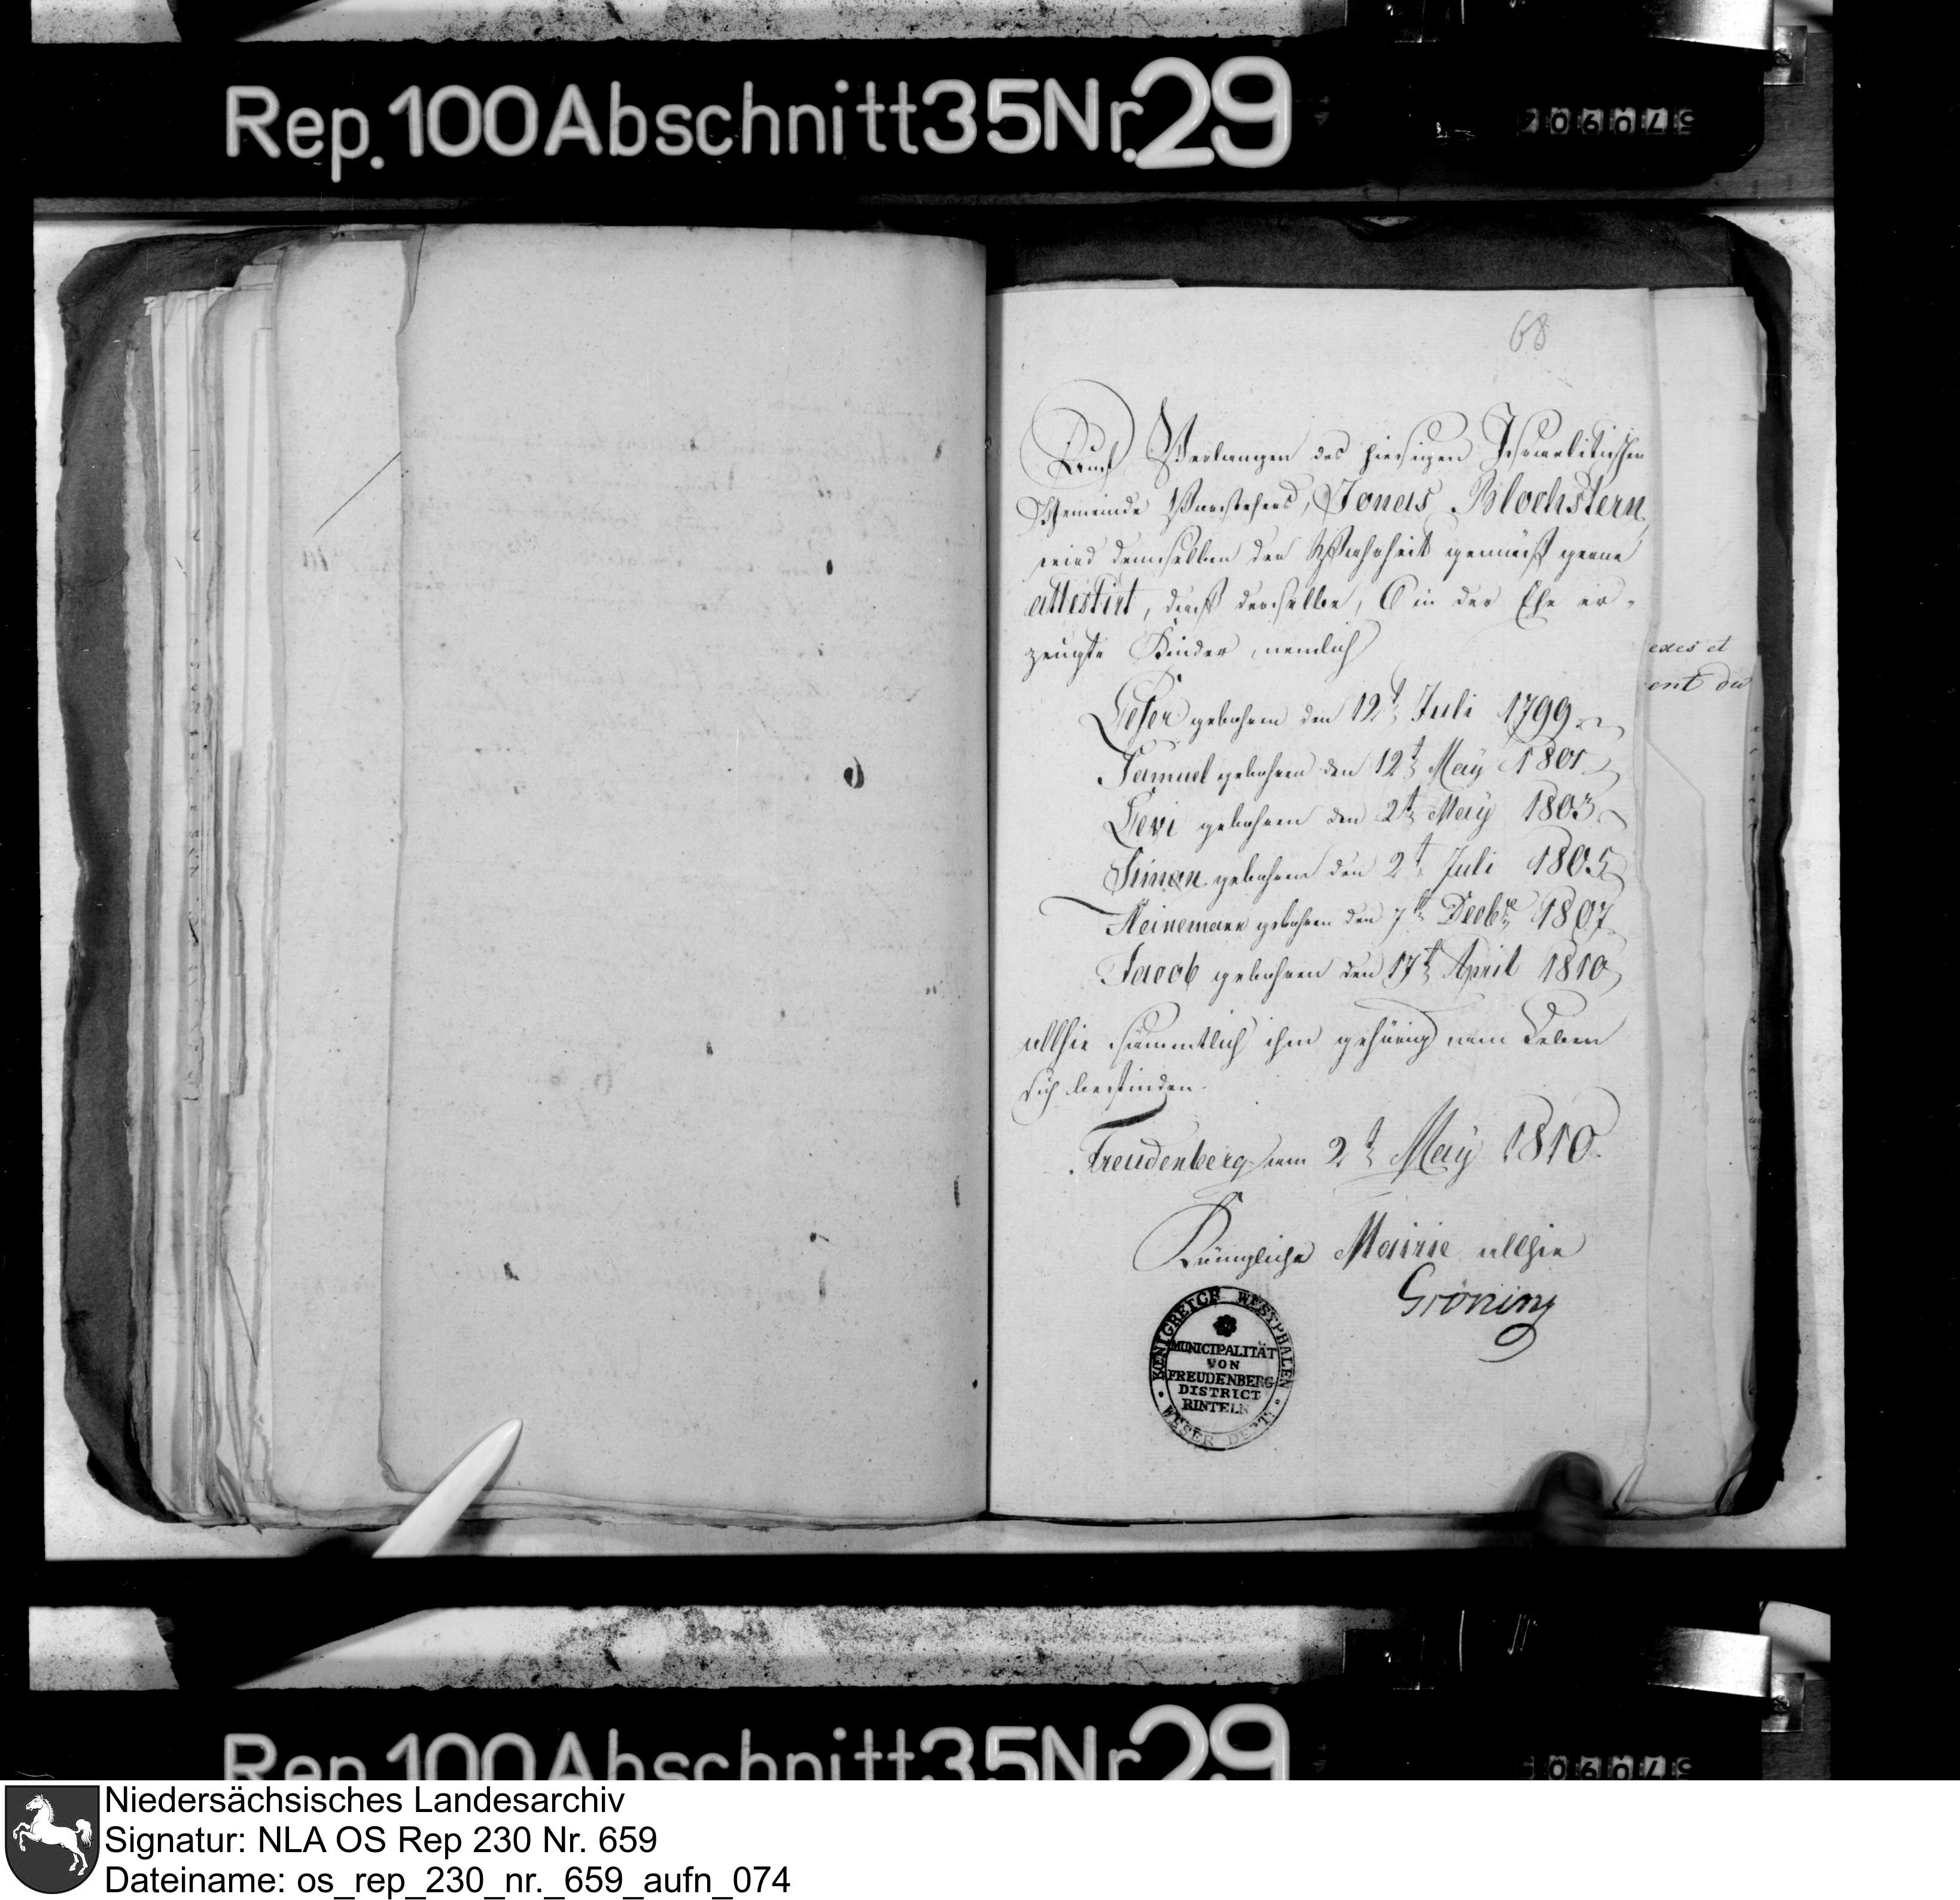 Rep. 100 Abschnitt 35 Nr. 29
68
Auf Verlangen des hiesigen Israelitischen
Gemeinde Vorstehers, Jonas Blochstern,
wird demselben der Wahrheit gemäß gerne
attestirt, daß derselbe, 6 in der Ehe er-
zeugte Kinder, nemlich
Leser gebohren den 12t Juli 1799
Samuel gebohren den 12t May 1801
Levi gebohren den 2t May 1803
Simon gebohren den 2t Juli 1805
Heinemann gebohren den 7t Decbr 1807
Jacob gebohren den 17t April 1810
allhie sämmtlich ihm gehörig am Leben
sich befinden.
Freudenberg am 2t May 1810.
Königliche Mairie allhie
Gröning
KŒNIGREICH WESTPHALEN
MUNICIPALITÄT
VON
FREUDENBERG
DISTRICT
RINTELN
WESER DEPT.
et
ent du
Rep. 100 Abschnitt 35 Nr. 29
Niedersächsisches Landesarchiv
Signatur: NLA OS Rep 230 Nr. 659
Dateiname: os_rep_230_nr._659_aufn_074